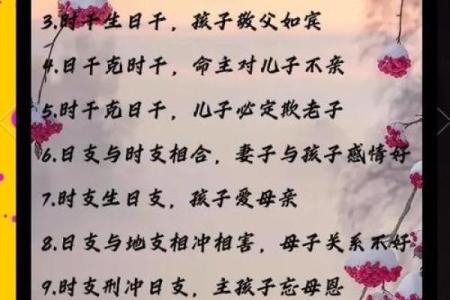 3.时干生日干，孩子敬父如宾
4.日干克时干，命主对儿子不亲
5.时干克日干，儿子必定欺老子
6.日支与时支相合，妻子与孩子感情好
7.时支生日支，孩子爱母亲
8.日支与地支相冲相害，母子关系不好
9.时支刑冲日支，主孩子忘母恩